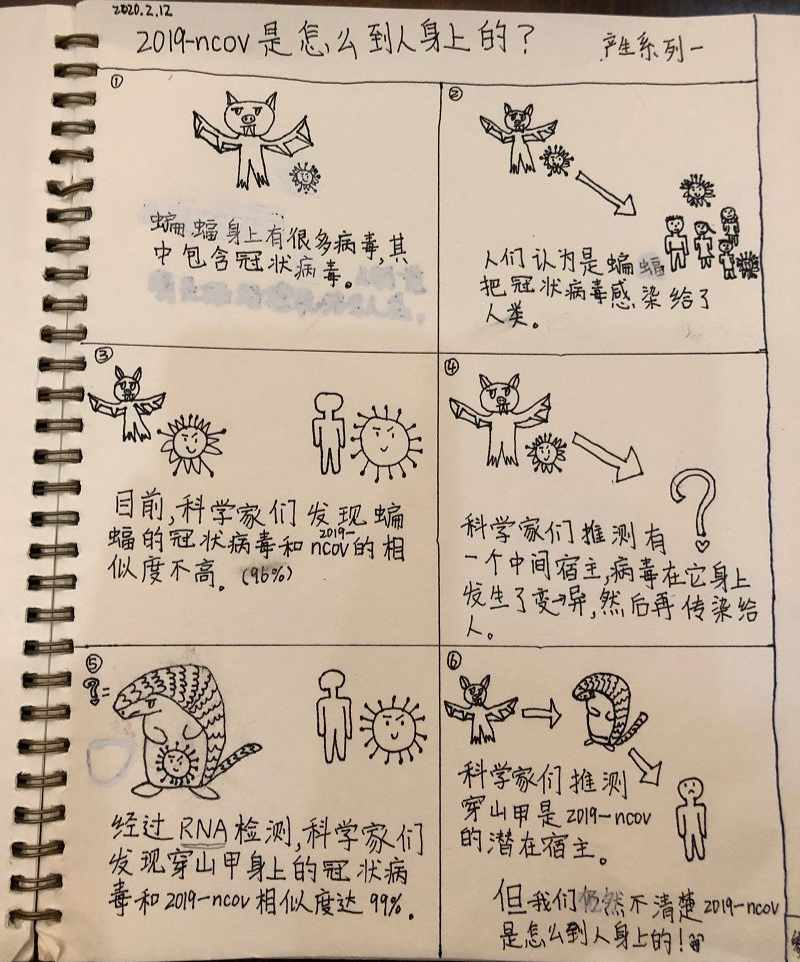 2020.2.12
2019-ncov是怎么到人身上的？
产生系列一
①
蝙蝠身上有很多病毒，其
中包含冠状病毒。
②
人们认为是蝙蝠
把冠状病毒感染给了
人类。
③
目前，科学家们发现蝙
蝠的冠状病毒和2019-ncov的相
似度不高。(96%)
④
?
科学家们推测有
一个中间宿主，病毒在它身上
发生了变异，然后再传染给
人。
⑤
?=
经过RNA检测，科学家们
发现穿山甲身上的冠状病
毒和2019-ncov相似度达99%。
⑥
科学家们推测
穿山甲是2019-ncov
的潜在宿主。
但我们仍然不清楚2019-ncov
是怎么到人身上的！